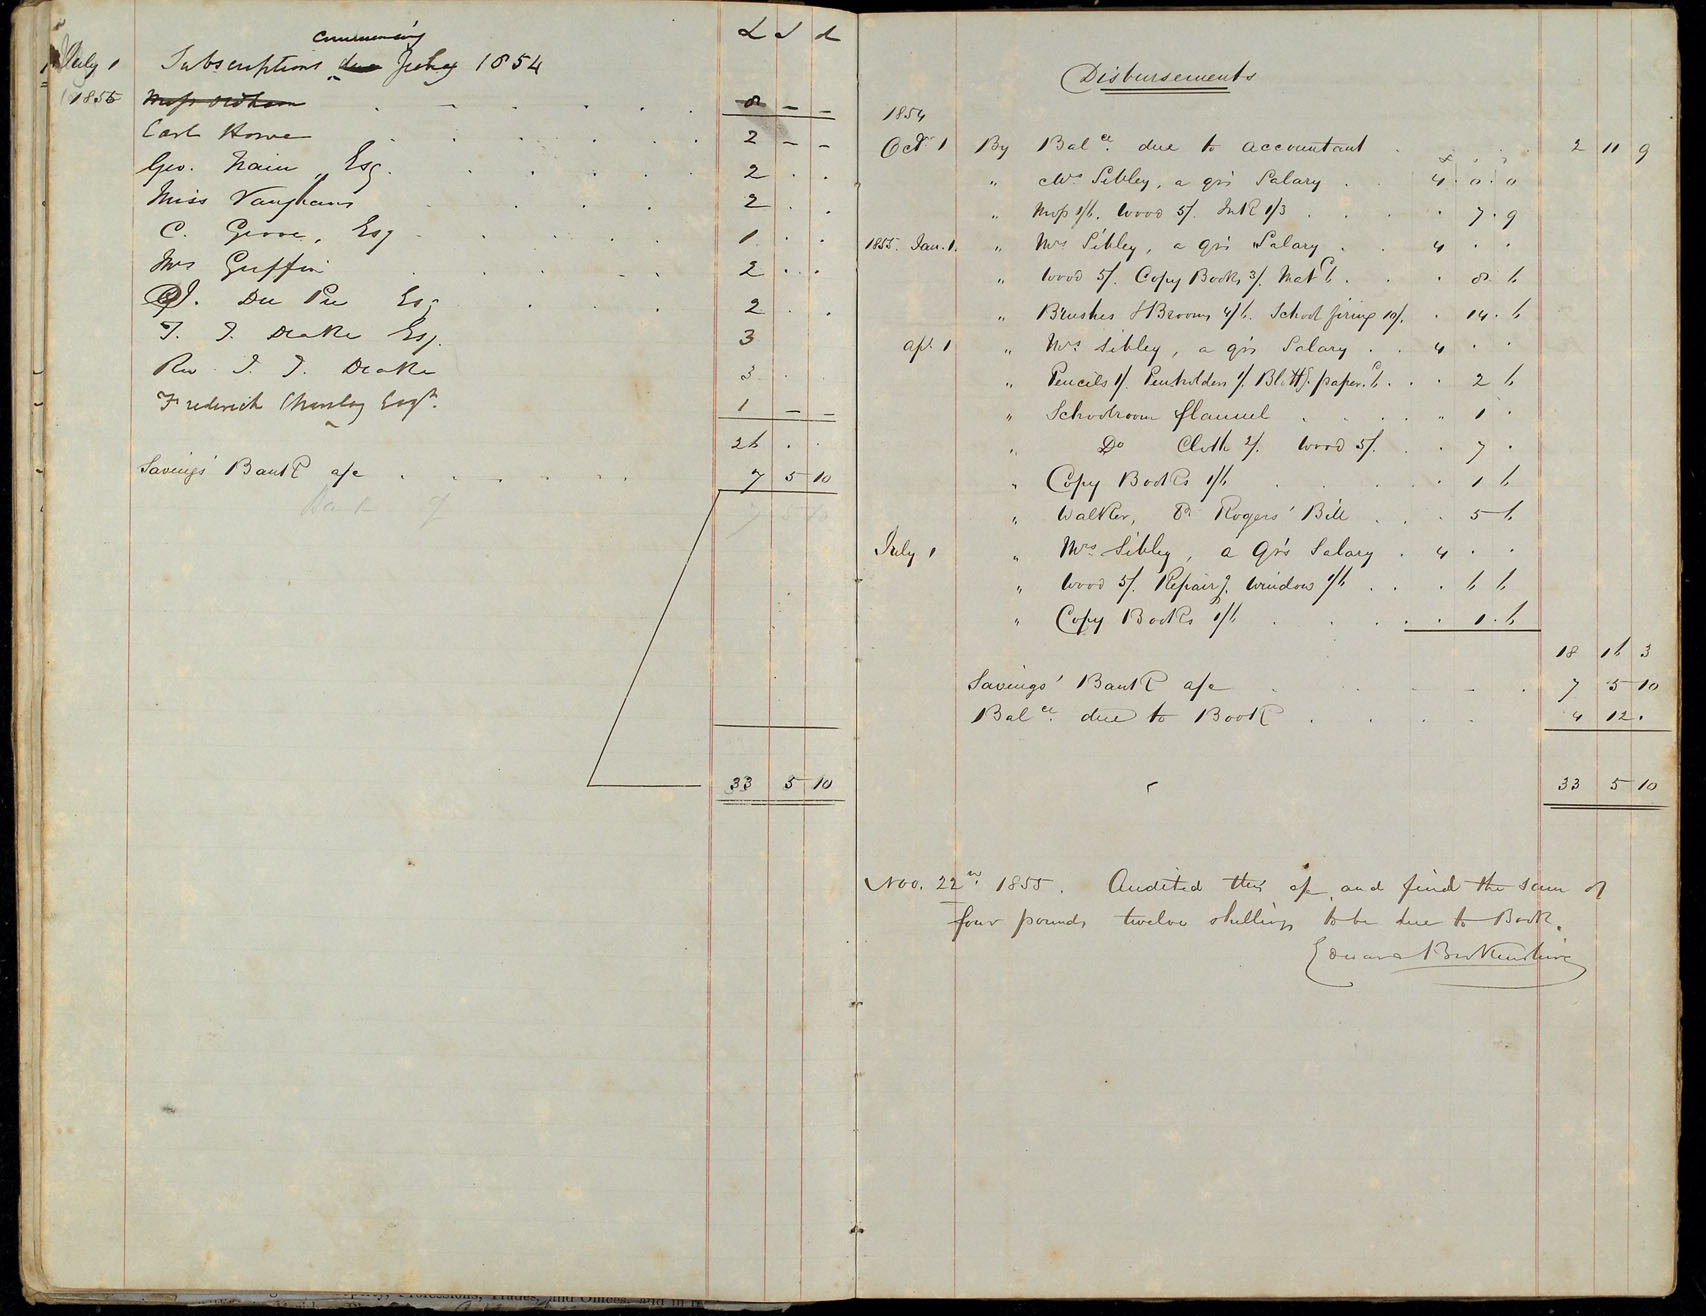 commencing
£ s d
July 1 Subscriptions due July 1854
1855 8 – –
Earl Howe 2 – –
Geo. Nairn, Esq. 2 . .
Miss Vaughans 2 . .
C. Grove, Esq 1 . .
Mrs Griffin 2 . .
J. Du Pre Esq 2 . .
T. T. Drake Esq. 3
Rev. J. T. Drake 3 . .
Frederick Charsley Esqr. 1 – –
26 . .
Savings' Bank a/c 7 5 10
33 5 10
Disbursements
1854
Octr 1 By Balce. due to accountant 2 11 9
" Mrs Sibley, a qrs Salary 4 . 0 . 0
" Mop 1/6. Wood 5/. Ink 1/3 7 . 9
1855. Jan. 1. " Mrs Sibley, a qrs Salary 4 . .
" Wood 5/. Copy Books 3/. Mat 6 8 . 6
" Brushes & Brooms 4/6. School firing 10/. 14 . 6
Apl. 1 " Mrs Sibley, a qrs Salary 4 . .
" Pencils 1/. Penholders 1/. Blottg. paper. 6 2 6
" Schoolroom flannel 1 .
" Do Cloth 2/. Wood 5/. 7 .
" Copy Books 1/6 1 6
" Walker, & Rogers' Bill 5 6
July 1 " Mrs Sibley, a Qrs Salary 4 . .
" Wood 5/. Repairg. Window 1/6 6 6
" Copy Books 1/6 1 . 6
18 16 3
Savings' Bank a/c 7 5 10
Balce. due to Book 4 12 .
33 5 10
Nov. 22nd. 1855. Audited this a/c and find the sum of
four pounds twelve shillings to be due to Book.
Edward